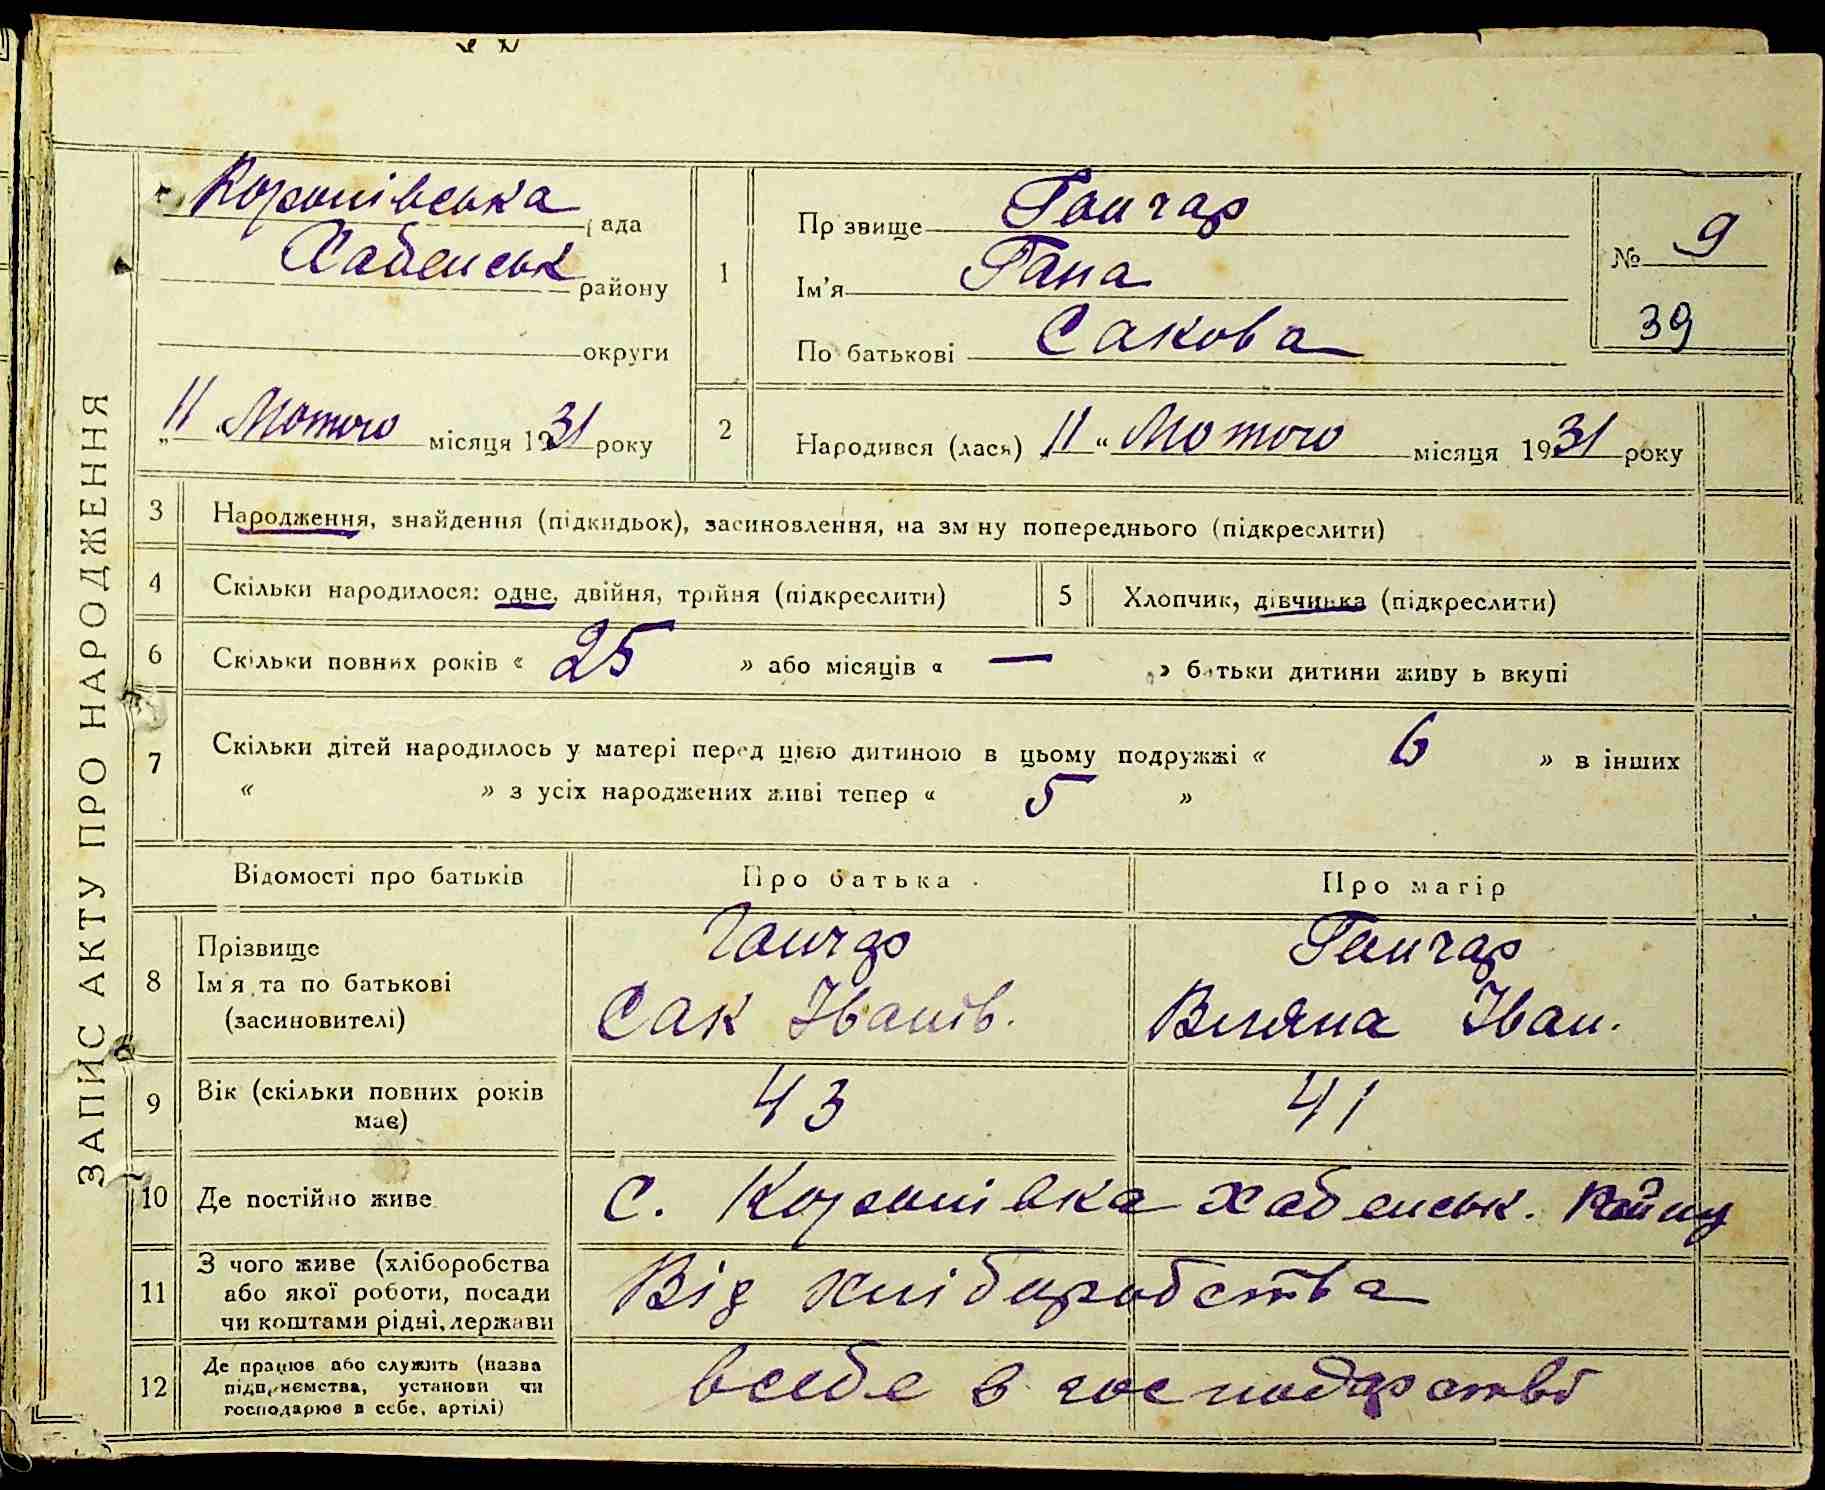 ЗАПИС АКТУ ПРО НАРОДЖЕННЯ
Коропівська рада
Хабенськ району
округи
11 Лютого місяця 1931 року
1
Прзвище Гончар
Ім'я Гана
По батькові Сакова
№ 9
39
2
Народився (лася) „11“ Лютого місяця 1931 року
3 Народження, знайдення (підкидьок), засиновлення, на зм ну попереднього (підкреслити)
4 Скільки народилося: одне, двійня, трійня (підкреслити)
5 Хлопчик, дівчинка (підкреслити)
6 Скільки повних років « 25 » або місяців « — » батьки дитини живуть вкупі
7 Скільки дітей народилось у матері перед цією дитиною в цьому подружжі « 6 » в інших
« » з усіх народжених живі тепер « 5 »
Відомості про батьків Про батька Про матір
8 Прізвище
Ім'я та по батькові
(засиновителі)
Гончар
Сак Іванів.
Гончар
Іван.
9 Вік (скільки повних років
має)
43 41
10 Де постійно живе с. Коропівка Хабенськ. Району
11 З чого живе (хліборобства
або якої роботи, посади
чи коштами рідні, держави
Від хліборобства
12 Де працює або служить (назва
підприємства, установи чи
господарює в себе, артілі)
в себе в господарстві